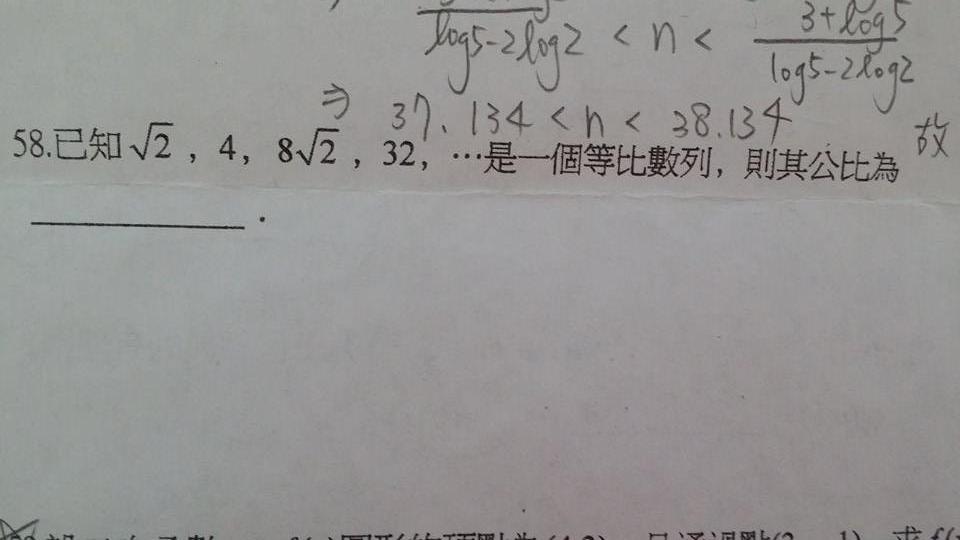 log5-2log2 < n < 3+log5 / log5-2log2
⇒ 37.134 < n < 38.134 故
58.已知√2，4，8√2，32，…是一個等比數列，則其公比為
________．